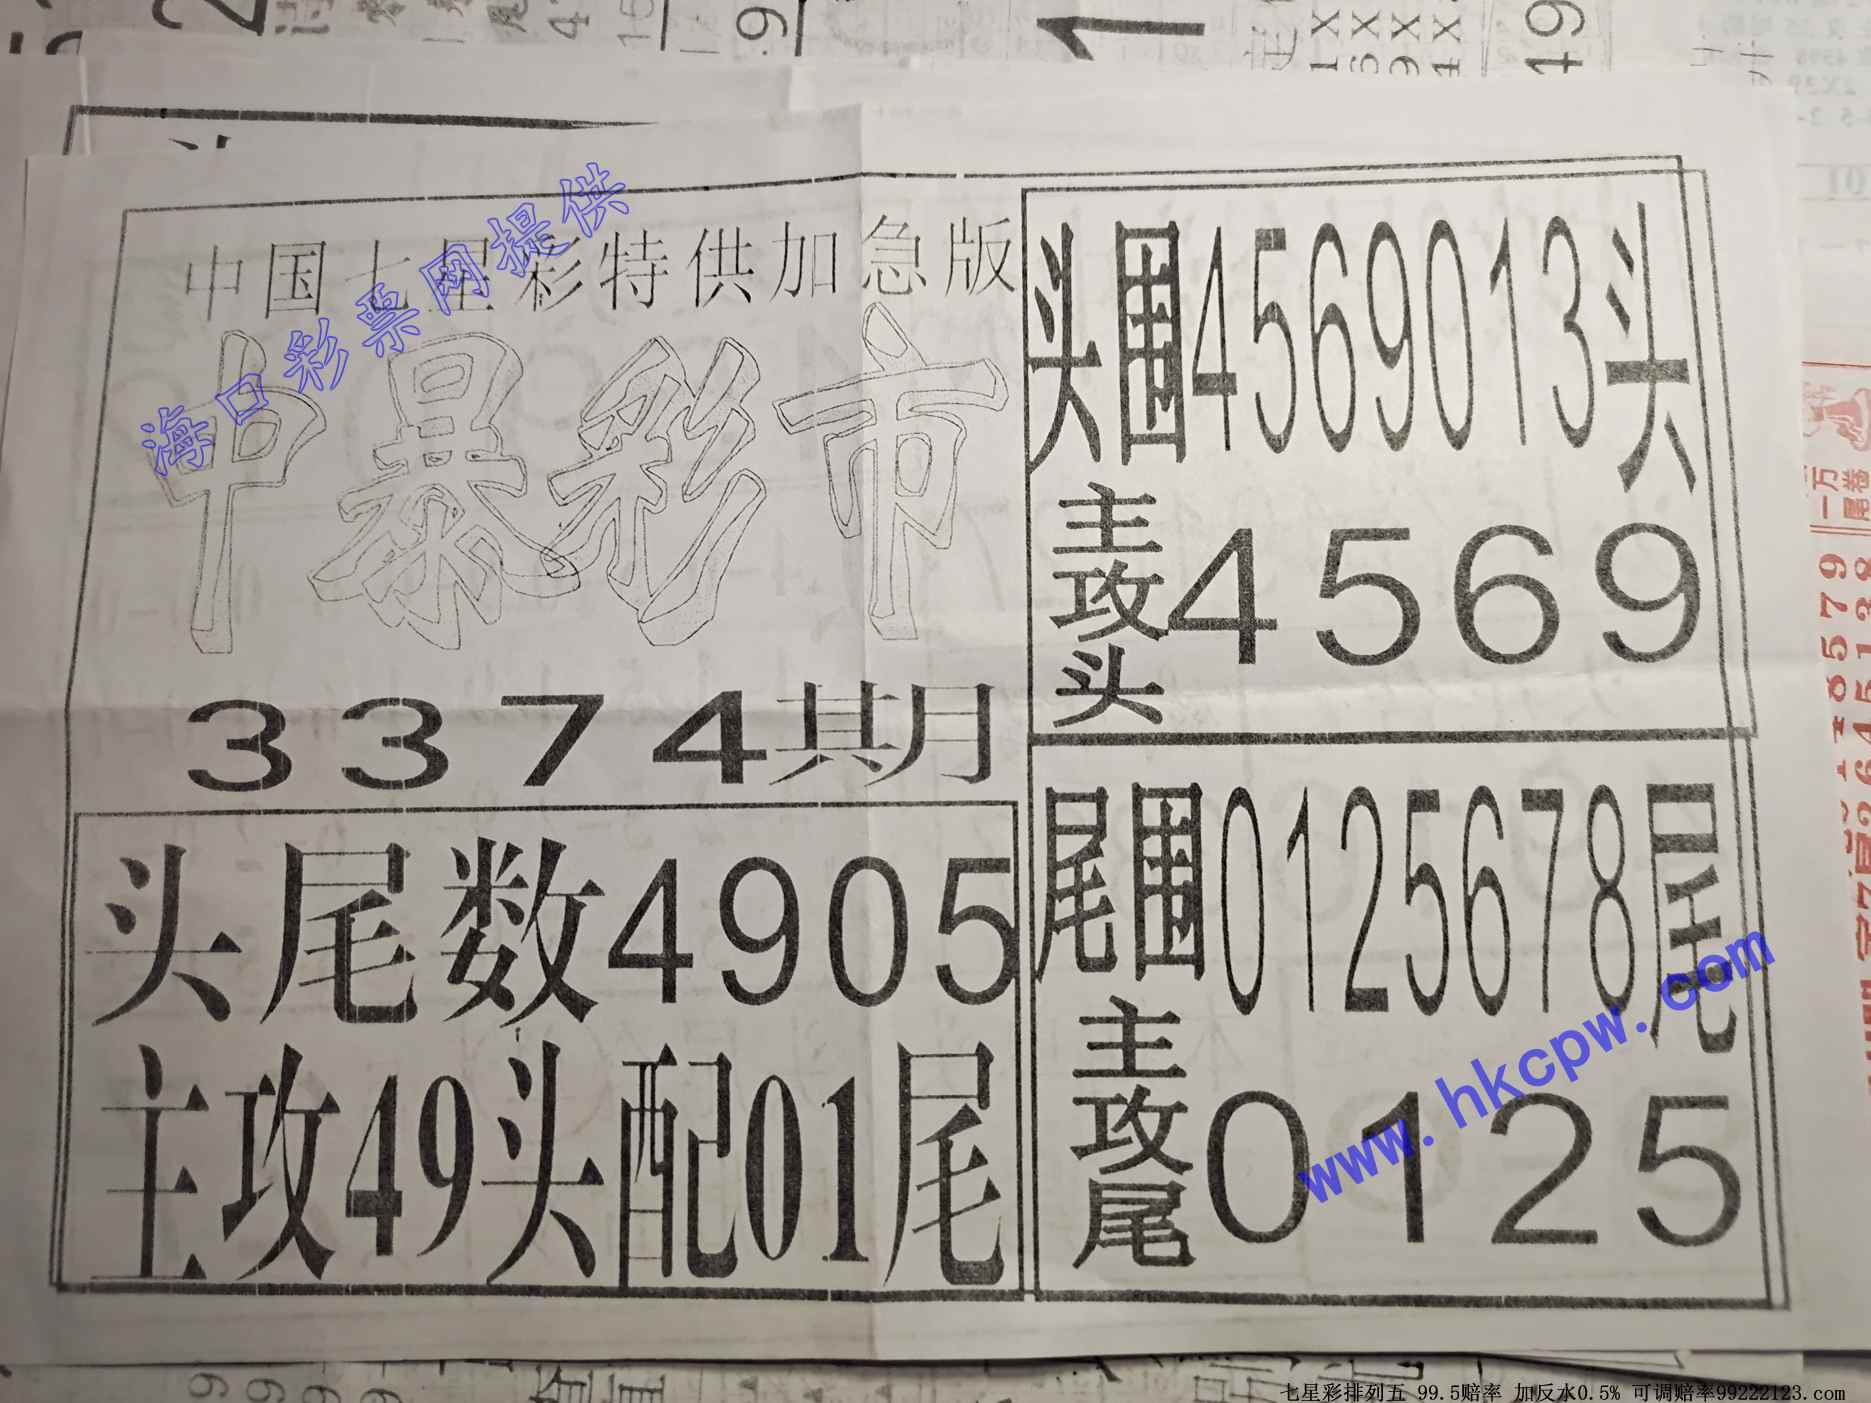 中国七星彩特供加急版
中暴彩市
3374期
头尾数4905
主攻49头配01尾
头围4569013头
主攻头4569
尾围0125678尾
主攻尾0125
海口彩票网提供
www.hkcpw.com
一万
18579
七星彩排列五 99.5赔率 加反水0.5% 可调赔率99222123.com